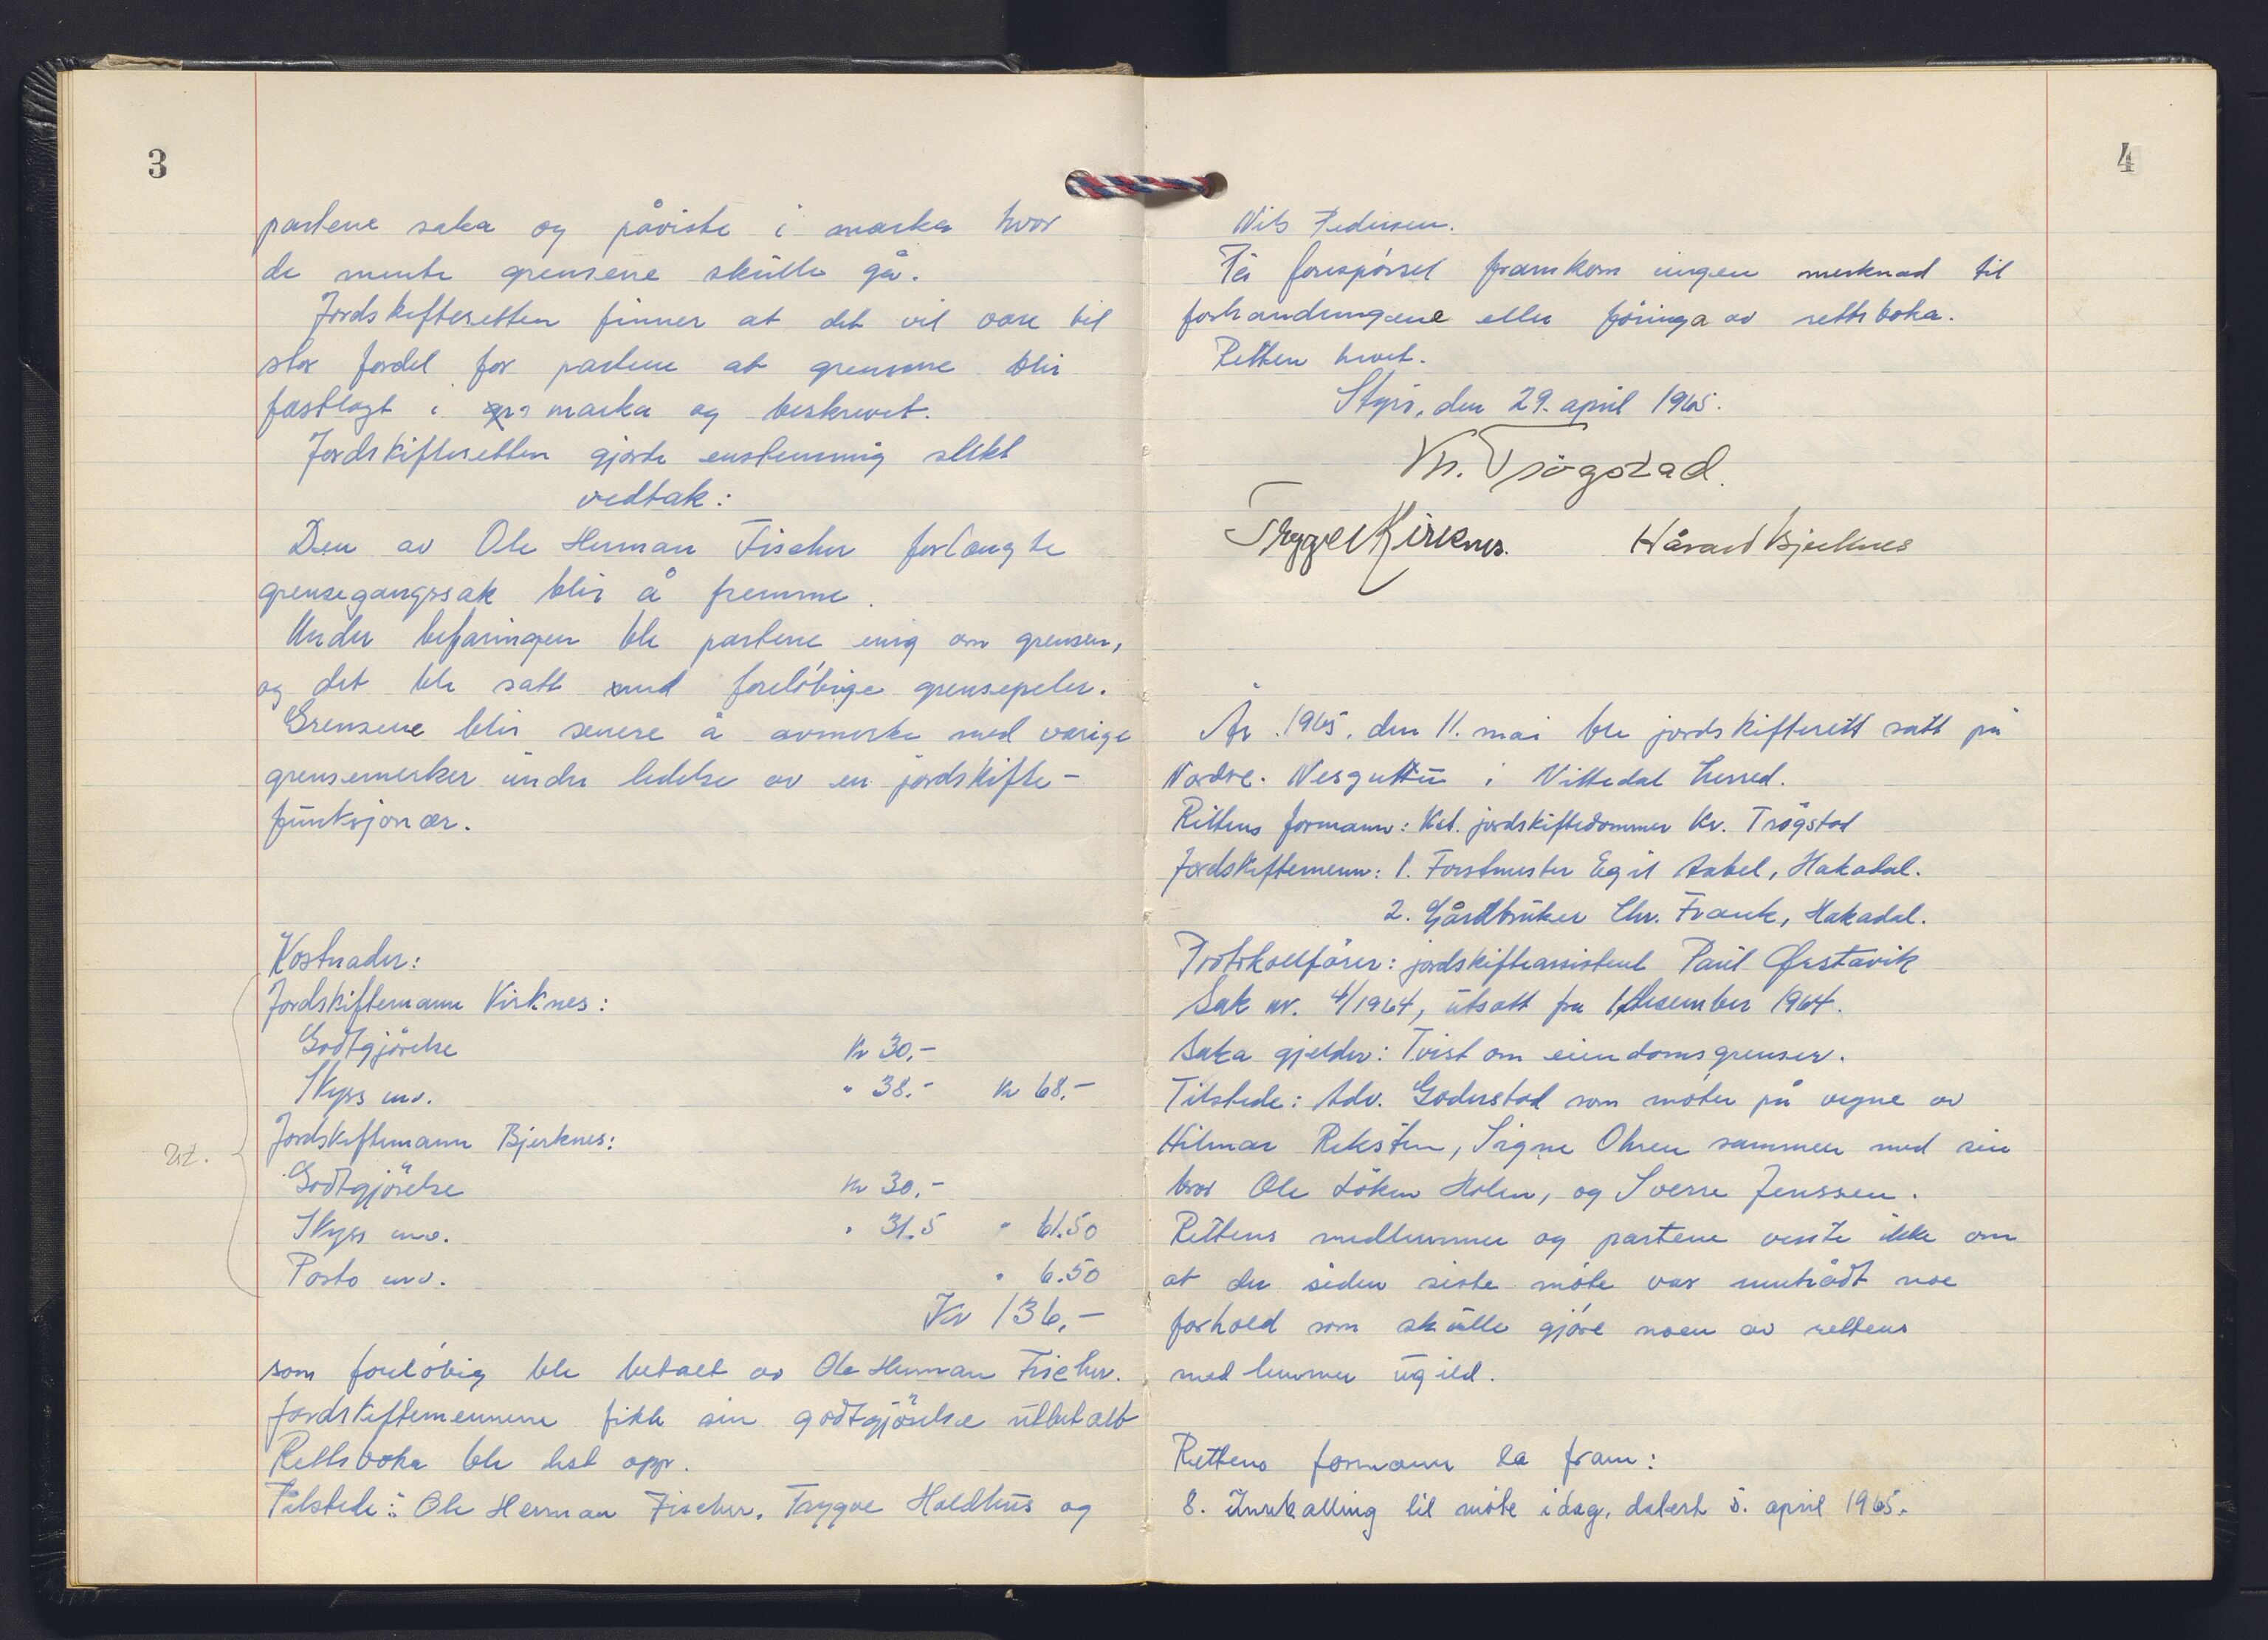 3
partene saka og påviste i marka hvor
de mente grensene skulle gå.
Jordskifteretten finner at det vil være til
stor fordel for partene at grensene blir
fastlagt i marka og beskrevet.
Jordskifteretten gjorde enstemmig slikt
vedtak:
Den av Ole Herman Fischer forlangte
grensegangssak blir å fremme.
Under befaringen ble partene enig om grensen,
og det ble satt ned foreløbige grensepeler.
Grensene blir senere å avmerke med varige
grensemerker under ledelse av en jordskifte-
funksjonær.
Kostnader:
Jordskiftemann Kirknes:
Godtgjørelse kr 30,-
Skyss m.v. " 38.- kr 68,-
Jordskiftemann Bjerknes:
Utl.
Godtgjørelse kr 30,-
Skyss m.v. " 31.5 " 61.50
Porto m.v. " 6.50
Kr 136,-
som foreløbig ble betalt av Ole Herman Fischer.
Jordskiftemennene fikk sin godtgjørelse utbetalt
Rettsboka ble lest opp.
Tilstede: Ole Herman Fischer, Trygve Holdhus og
4
Nils Pedersen.
På forespørsel framkom ingen merknad til
forhandlingene eller føringa av rettsboka.
Retten hevet.
Styri, den 29. april 1965.
Kr. Trøgstad.
Trygve Kirknes. Håvard Bjerknes
År 1965, den 11. mai ble jordskifterett satt på
Nordre i Nittedal herred.
Rettens formann: Kst. jordskiftedommer Kr. Trøgstad
Jordskiftemenn: 1. Forstmester Egil Aabel, Hakadal.
2. Gårdbruker Chr. Frank, Hakadal.
Protokollfører: jordskifteassistent Paul Ørstavik
Sak nr. 4/1964, utsatt fra 1. desember 1964.
Saka gjelder: Tvist om eiendomsgrenser.
Tilstede: Adv. Goderstad som møter på vegne av
Hilmar Reksten, Signe Ohren sammen med sin
bror Ole Løken Holm, og Sverre Jenssen.
Rettens medlemmer og partene visste ikke om
at der siden siste møte var inntrådt noe
forhold som skulle gjøre noen av rettens
medlemmer ugild.
Rettens formann la fram:
8. Innkalling til møte idag, datert 5. april 1965.